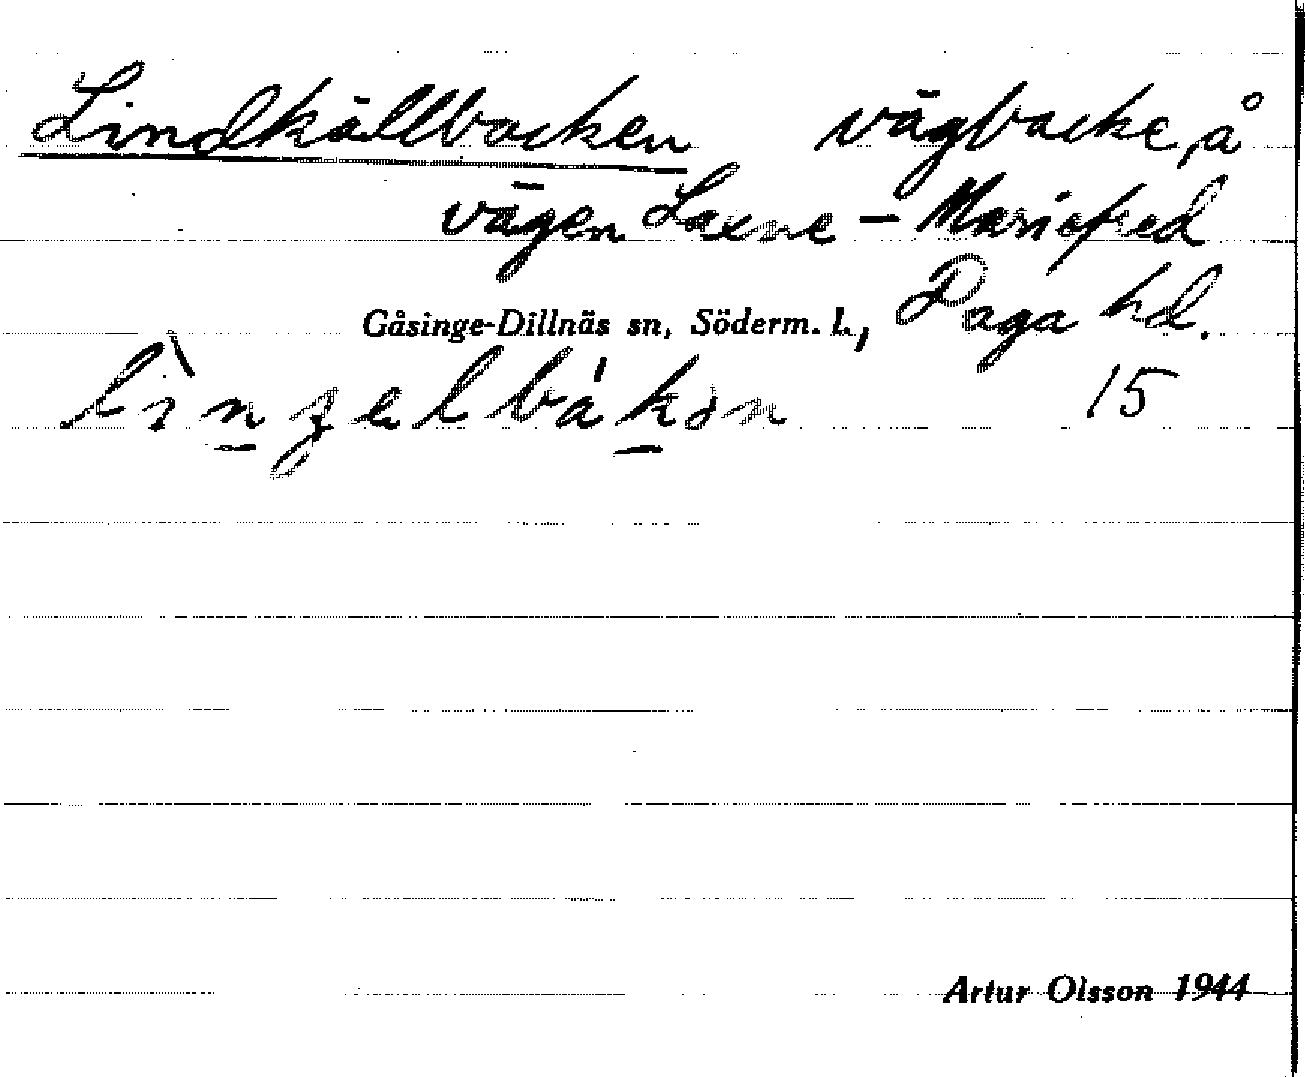 Lindkällbacken vägbacke, å
vägen Laxne – Mariefred
Gåsinge-Dillnäs sn, Söderm. l., Daga hd.
15
Artur Olsson 1944